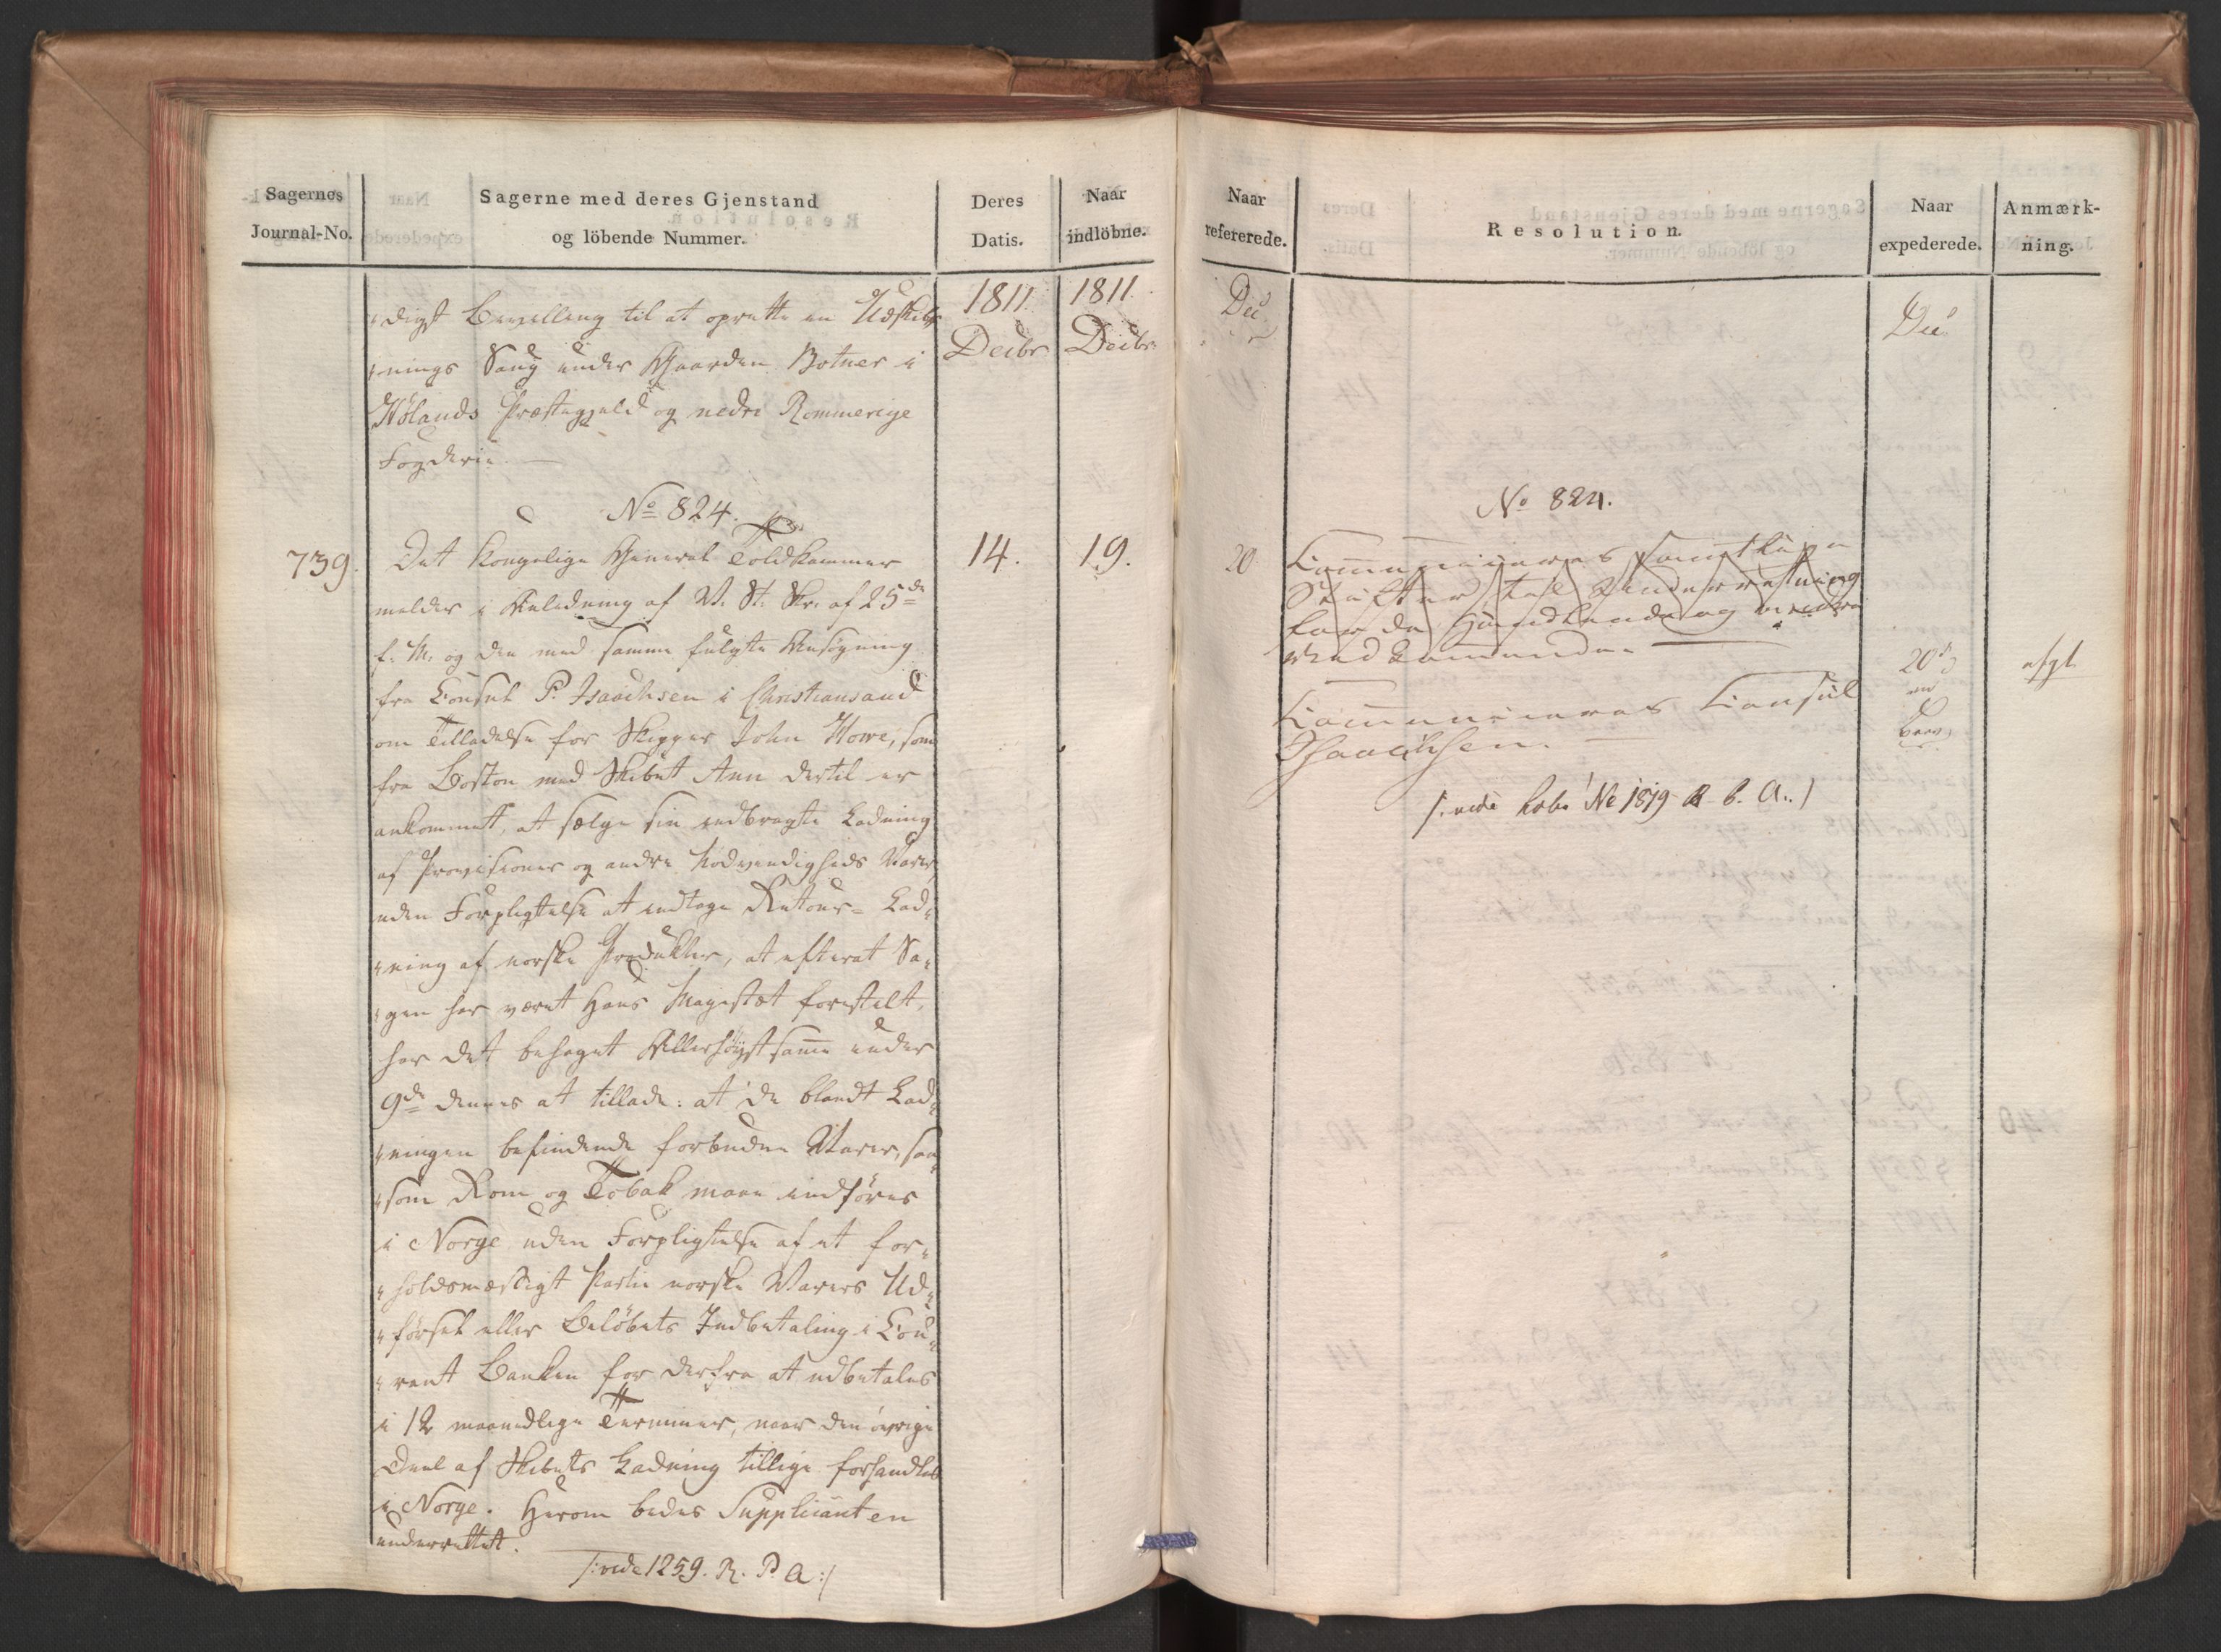 Sagernes
Journal-No.
Sagerne med deres Gjenstand
og löbende Nummer.
Deres
Datis.
Naar
indlöbne.
1811.
Decbr
1811.
Decbr.
digst Bevilling til at oprette en Udskib-
nings Saug under Gaarden Botner i
Hølands Præstegjeld og nedre Rommerige
Fogderie.
No 824.
739.
14.
19.
Det Kongelige General Toldkammer
melder i Anledning af V. St. Skr. af 25de
f. M. og den med samme fulgte Ansøgning
fra Consul P. Isaachsen i Christiansand
om Tilladelse for Skipper John Howe, som
fra Boston med Skibet Ann dertil er
ankommet, at sælge sin indbragte Ladning
af Provisioner og andre Nødvendigheds Varer,
uden Forpligtelse at indtage Retour-Lad-
ning af norske Produkter, at efterat Sa-
gen har været Hans Majestæt forestilt,
har det behaget Allerhøistsamme under
9de dennes at tillade: at de blandt Lad-
ningen befindende forbudne Varer, saa-
som Rom og Tobak maae indføres
i Norge uden Forpligtelse af et for-
holdsmæssigt Partie norske Varers Ud-
førsel eller Beløbets Indbetaling i Cou-
rant Banken for derfra at udbetales
i 12 maanedlige Terminer, naar den øvrige
Deel af Skibets Ladning tillige forhandles
i Norge. Herom bedes Supplicanten
underrettet.
/: vide 1259. R. P. A :/
Naar
refererede.
Resolution.
Naar
expederede.
Anmærk-
ning.
No 824.
20.
Communiceres samtlige
Stifter til Underretning
for de Handlende og andre
Vedkommende.
20de
afgt
Communiceres Consul
Isaachsen.
/: vide No 1819 R. A. :/